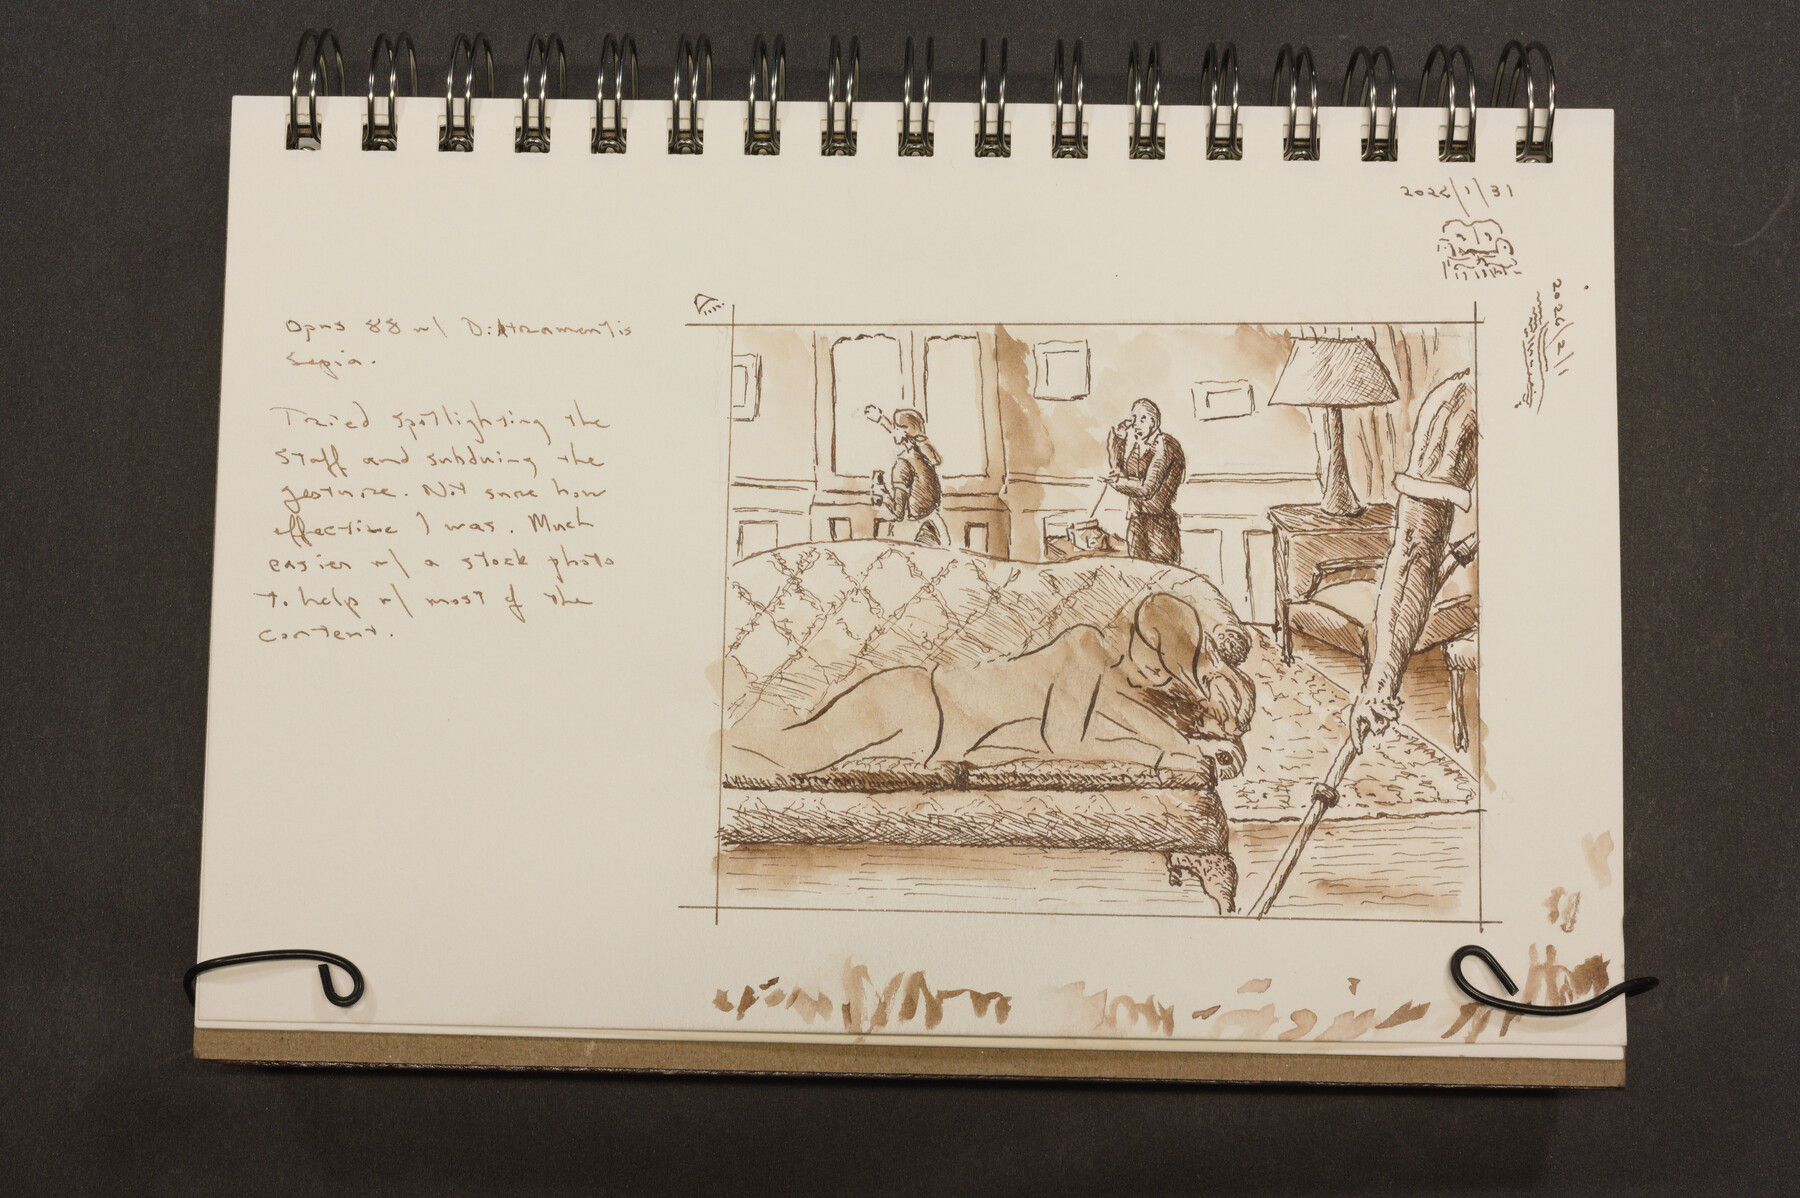 2026/1/31
2026/2/1
Opus 88 w/ D. Atramentis
Sepia.
Tried spotlighting the
staff and subduing the
gesture. Not sure how
effective I was. Much
easier w/ a stock photo
to help w/ most of the
content.